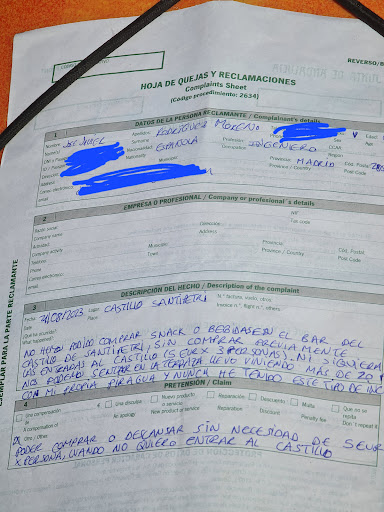 REVERSO/R
HOJA DE QUEJAS Y RECLAMACIONES
Complaints Sheet
(Código procedimiento: 2634)
1 DATOS DE LA PERSONA RECLAMANTE / Complainant's details
Nombre Apellidos RODRIGUEZ MORENO
Name(s) Surname Sex
Nacionalidad ESPAÑOLA Profesión INGENIERO
Nationality Occupation
Municipio Provincia MADRID Cód. Postal
Province / Country Post Code
Correo electrónico
2 EMPRESA O PROFESIONAL / Company or professional's details
Razón social NIF
Company name Dirección Tax code
Actividad Address
Company activity Municipio Provincia Cód. Postal
Teléfono Town Province / Country Post Code
Phone
Correo electrónico
email
3 DESCRIPCIÓN DEL HECHO / Description of the complaint
Fecha 24/08/2023 Lugar CASTILLO SANTIPETRI N.º factura, vuelo, otro.
Date Place Invoice n.º, flight n.º, others
¿Qué ha ocurrido?
What happened?
NO HEMOS PODIDO COMPRAR SNACK O BEBIDAS EN EL BAR DEL
CASTILLO DE SANTIPETRI, SIN COMPRAR PREVIAMENTE
LAS ENTRADAS AL CASTILLO (5 EUR X 2 PERSONAS). NI SIQUIERA
NOS PODEMOS SENTAR EN LA TERRAZA. LLEVO VINIENDO MÁS DE 20
CON MI PROPIA PIRAGUA Y NUNCA HE TENIDO ESTE TIPO DE INC
4 PRETENSIÓN / Claim
Una compensación Una disculpa Nuevo producto o servicio Reparación Descuento Multa Que no se repita
X compensation of An apology New product or service Reparation Discount Penalty fee Don't repeat it
Otra / Other
PODER COMPRAR O DESCANSAR SIN NECESIDAD DE 5EUR
X PERSONA, CUANDO NO QUIERO ENTRAR AL CASTILLO
EJEMPLAR PARA LA PARTE RECLAMANTE